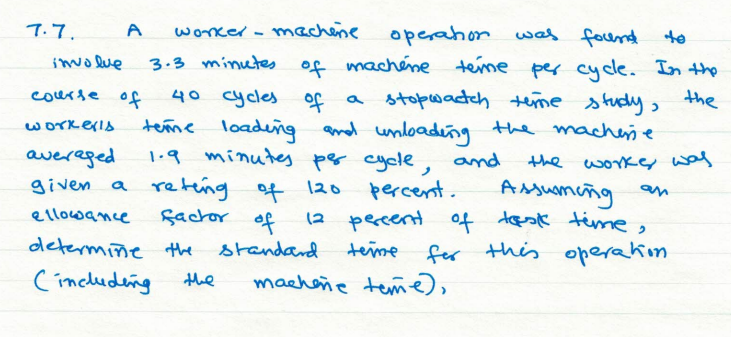 7.7. A worker-machine operation was found to
involve 3.3 minutes of machine time per cycle. In the
course of 40 cycles of a stopwatch time study, the
workers time loading and unloading the machine
averaged 1.9 minutes per cycle, and the worker was
given a rating of 120 percent. Assuming an
allowance factor of 12 percent of task time,
determine the standard time for this operation
(including the machine time),